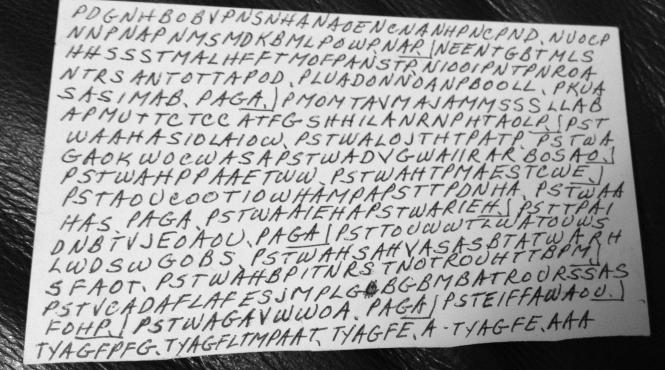 PDGNHBOBVPNSNHANAOENCNANHPNCPND, NUOCP
NNPNAPNMSMDKBMLPOWPNAP, NEENTGBTMLS
HHSSSTMALHFFTMOFPANSTP, NIOOIPNTPNROA
NTRSANTOTTAPOD, PLUADONNOANPBOOLL, PKUA
SASIMAB, PAGA, PMOMTAVMAJAMMSSSLLAB
APMUTTCTCCATFGSHHILANRNPHTAOLP, PST
WAAHASIOLAIOW, PSTWALOJTHTPATP, PSTWA
GAOKWOCWASAPSTWADVGWAIIRARBOSAO,
PSTWAHPPAAETWW, PSTWAHTPMAESTCWE,
PSTAOUCOOTIOWHAMPAPSTTPDNHA, PSTWAA
HAS, PAGA, PSTWAAIEHAPSTWARIEH, PSTTPAI
DNBTVJEOAOU, PAGA, PSTTOUWWTLWATOUWS
LWDSWGOBS, PSTWAHSAHVASASBTATWARH
SFAOT, PSTWAHBPITNRSTNOTROUHTTBPM,
PSTVCADAFLAFESJMPLGBGBMBATROURSSAS
FOHP, PSTWAGAVWWOA, PAGA, PSTEIFFAWAOU,
TYAGFPFG, TYAGFLTMPAAT, TYAGFE, A-TYAGFE, AAA